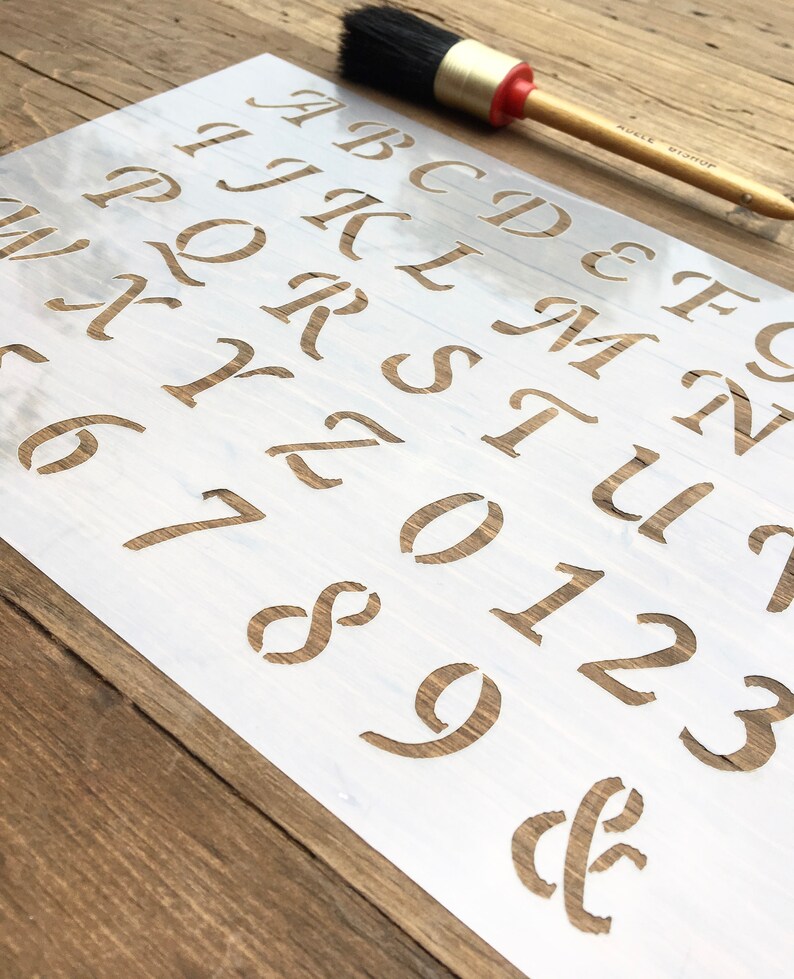 ADELE BISHOP
A B C D E F G
I J K L M N
P Q R S T U
W X Y Z 0 1 2 3
6 7 8 9 &